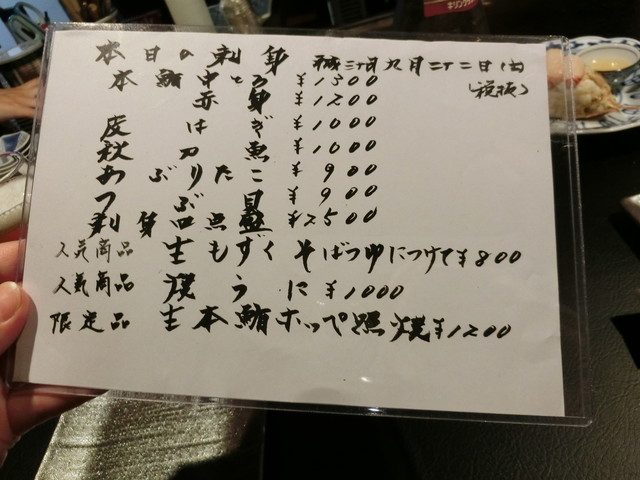 本日の刺身 平成三十年九月二十二日(土)
本鮪中とろ ¥1500 (税抜)
赤身 ¥1200
皮はぎ ¥1000
秋刀魚 ¥1000
あぶりたこ ¥900
つぶ貝 ¥900
刺身四点盛 ¥2500
人気商品 生もずく そばつゆにつけて ¥800
人気商品 焼うに ¥1000
限定品 生本鮪ホッペ照焼 ¥1200